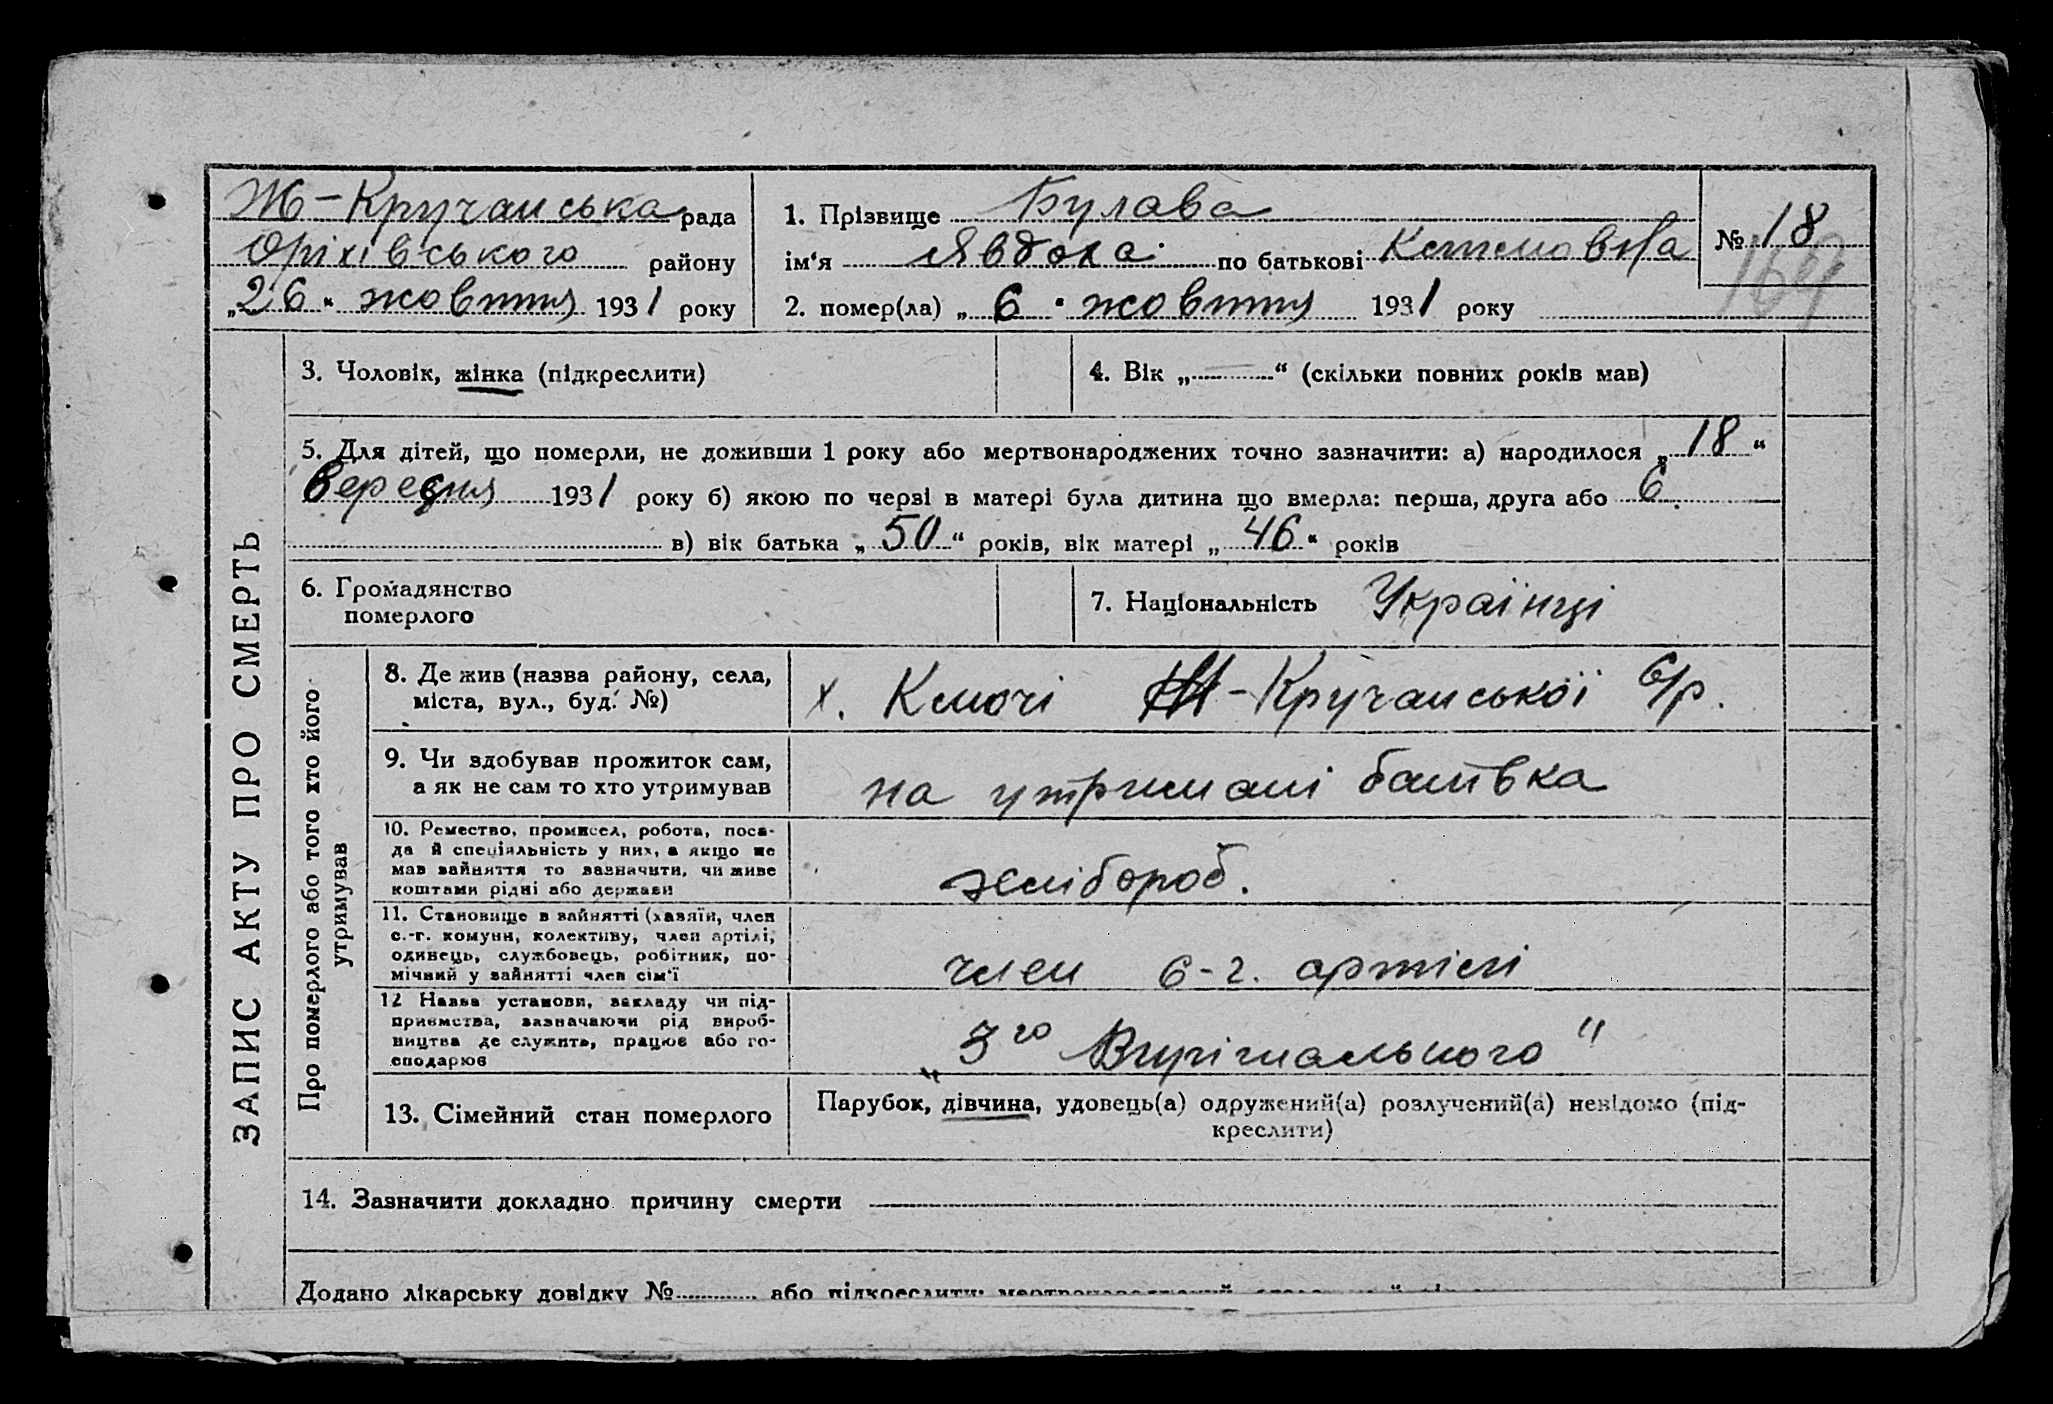 Ж-Кручанська рада
Оріхівського району
„26“ жовтня 1931 року
1. Прізвище Булава
ім'я Явдоха по батькові
2. помер(ла) „6“ жовтня 1931 року
№ 18
169
3. Чоловік, жінка (підкреслити)
4. Вік „ “ (скільки повних років мав)
5. Для дітей, що померли, не доживши 1 року або мертвонароджених точно зазначити: а) народилося „18“
вересня 1931 року б) якою по черзі в матері була дитина що вмерла: перша, друга або 6.
в) вік батька „50“ років, вік матері „46“ років
6. Громадянство
померлого
7. Національність Українці
ЗАПИС АКТУ ПРО СМЕРТЬ
Про померлого або того хто його
утримував
8. Де жив (назва району, села,
міста, вул., буд. №)
х. Ключі Ж-Кручанської с/р.
9. Чи здобував прожиток сам,
а як не сам то хто утримував
на утримані батвка
10. Ремество, промисел, робота, поса-
да й спеціяльність у них, а якщо не
мав зайняття то зазначити, чи живе
коштами рідні або держави
хлібороб.
11. Становище в зайнятті (хазяїн, член
с.-г. комуни, колективу, член артілі,
одинець, службовець, робітник, по-
мічний у зайнятті член сім'ї
член с-г. артілі
12 Назва установи, закладу чи під-
приємства, зазначаючи рід вироб-
ництва де служить, працює або го-
сподарює
„3го Вирішального“
13. Сімейний стан померлого
Парубок, дівчина, удовець(а) одружений(а) розлучений(а) невідомо (під-
креслити)
14. Зазначити докладно причину смерти
Додано лікарську довідку № або підкреслити: